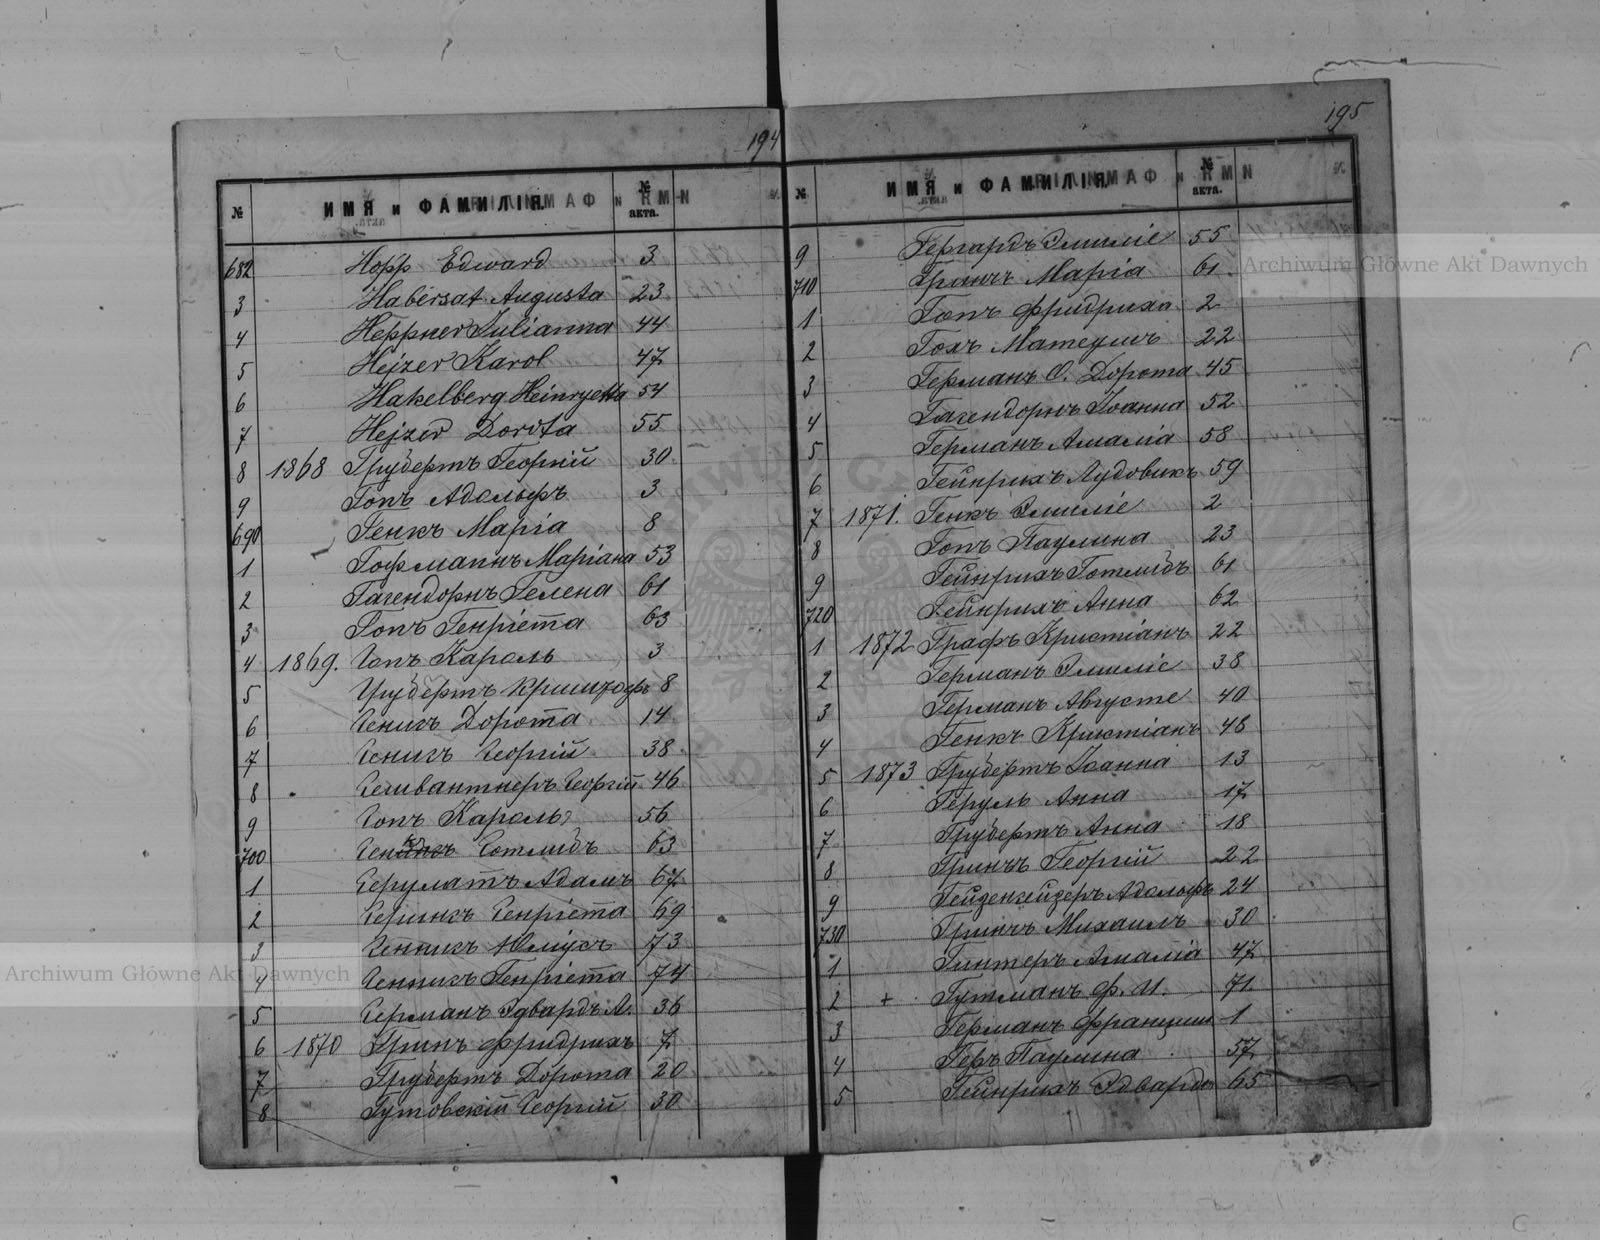 194
№ ИМЯ и ФАМИЛІЯ. № акта.
682 Hopp Edward 3
3 Habersat Augusta 23
4 Heppner Julianna 44
5 Hejzer Karol 47
6 Hakelberg Heinryetta 54
7 Hejzer Dorota 55
8 1868 Грубертъ Георгій 30
9 Гопъ Адольфъ 3
690 Генкъ Марія 8
1 Гофманнъ Маріана 53
2 Гагендорнъ Гелена 61
3 Гопъ Генріета 63
4 1869. Гопъ Кароль 3
5 Грубертъ Криштофъ 8
6 Генигъ Дорота 14
7 Генигъ Георгій 38
8 Георгій 46
9 Гопъ Кароль 56
700 Готлидъ 63
1 Герулатъ Адамъ 67
2 Генріета 69
3 Геннигъ Юліусъ 73
4 Геннигъ Генріета 74
5 Германъ Эдвардъ А. 36
6 1870 Гринъ Фридрихъ 7
7 Грубертъ Дорота 20
8 Гутовскій Георгій 30
195
№ ИМЯ и ФАМИЛІЯ. № акта.
9 Гергардъ Эмиліе 55
710 Марія 61
1 Гопъ Фридриха 2
2 Гохъ Матеушъ 22
3 Германъ О. Дорота 45
4 Гагендорнъ Іоанна 52
5 Германъ Амалія 58
6 Гейнрихъ Лудовикъ 59
7 1871. Генкъ Эмиліе 2
8 Гопъ Паулина 23
9 Гейнрихъ Готлидъ 61
720 Гейнрихъ Анна 62
1 1872 Графъ Кристіанъ 22
2 Германъ Эмиліе 38
3 Германъ Августе 40
4 Генкъ Кристіанъ 48
5 1873 Грубертъ Іоанна 13
6 Геруль Анна 17
7 Грубертъ Анна 18
8 Георгій 22
9 Адольфъ 24
730 Михаилъ 30
1 Гинтеръ Амалія 47
2 + Гутманъ Ф. И. 71
3 Германъ Францишк 1
4 Паулина 57
5 Гейнрихъ Эдвардъ 65
Archiwum Główne Akt Dawnych
Archiwum Główne Akt Dawnych